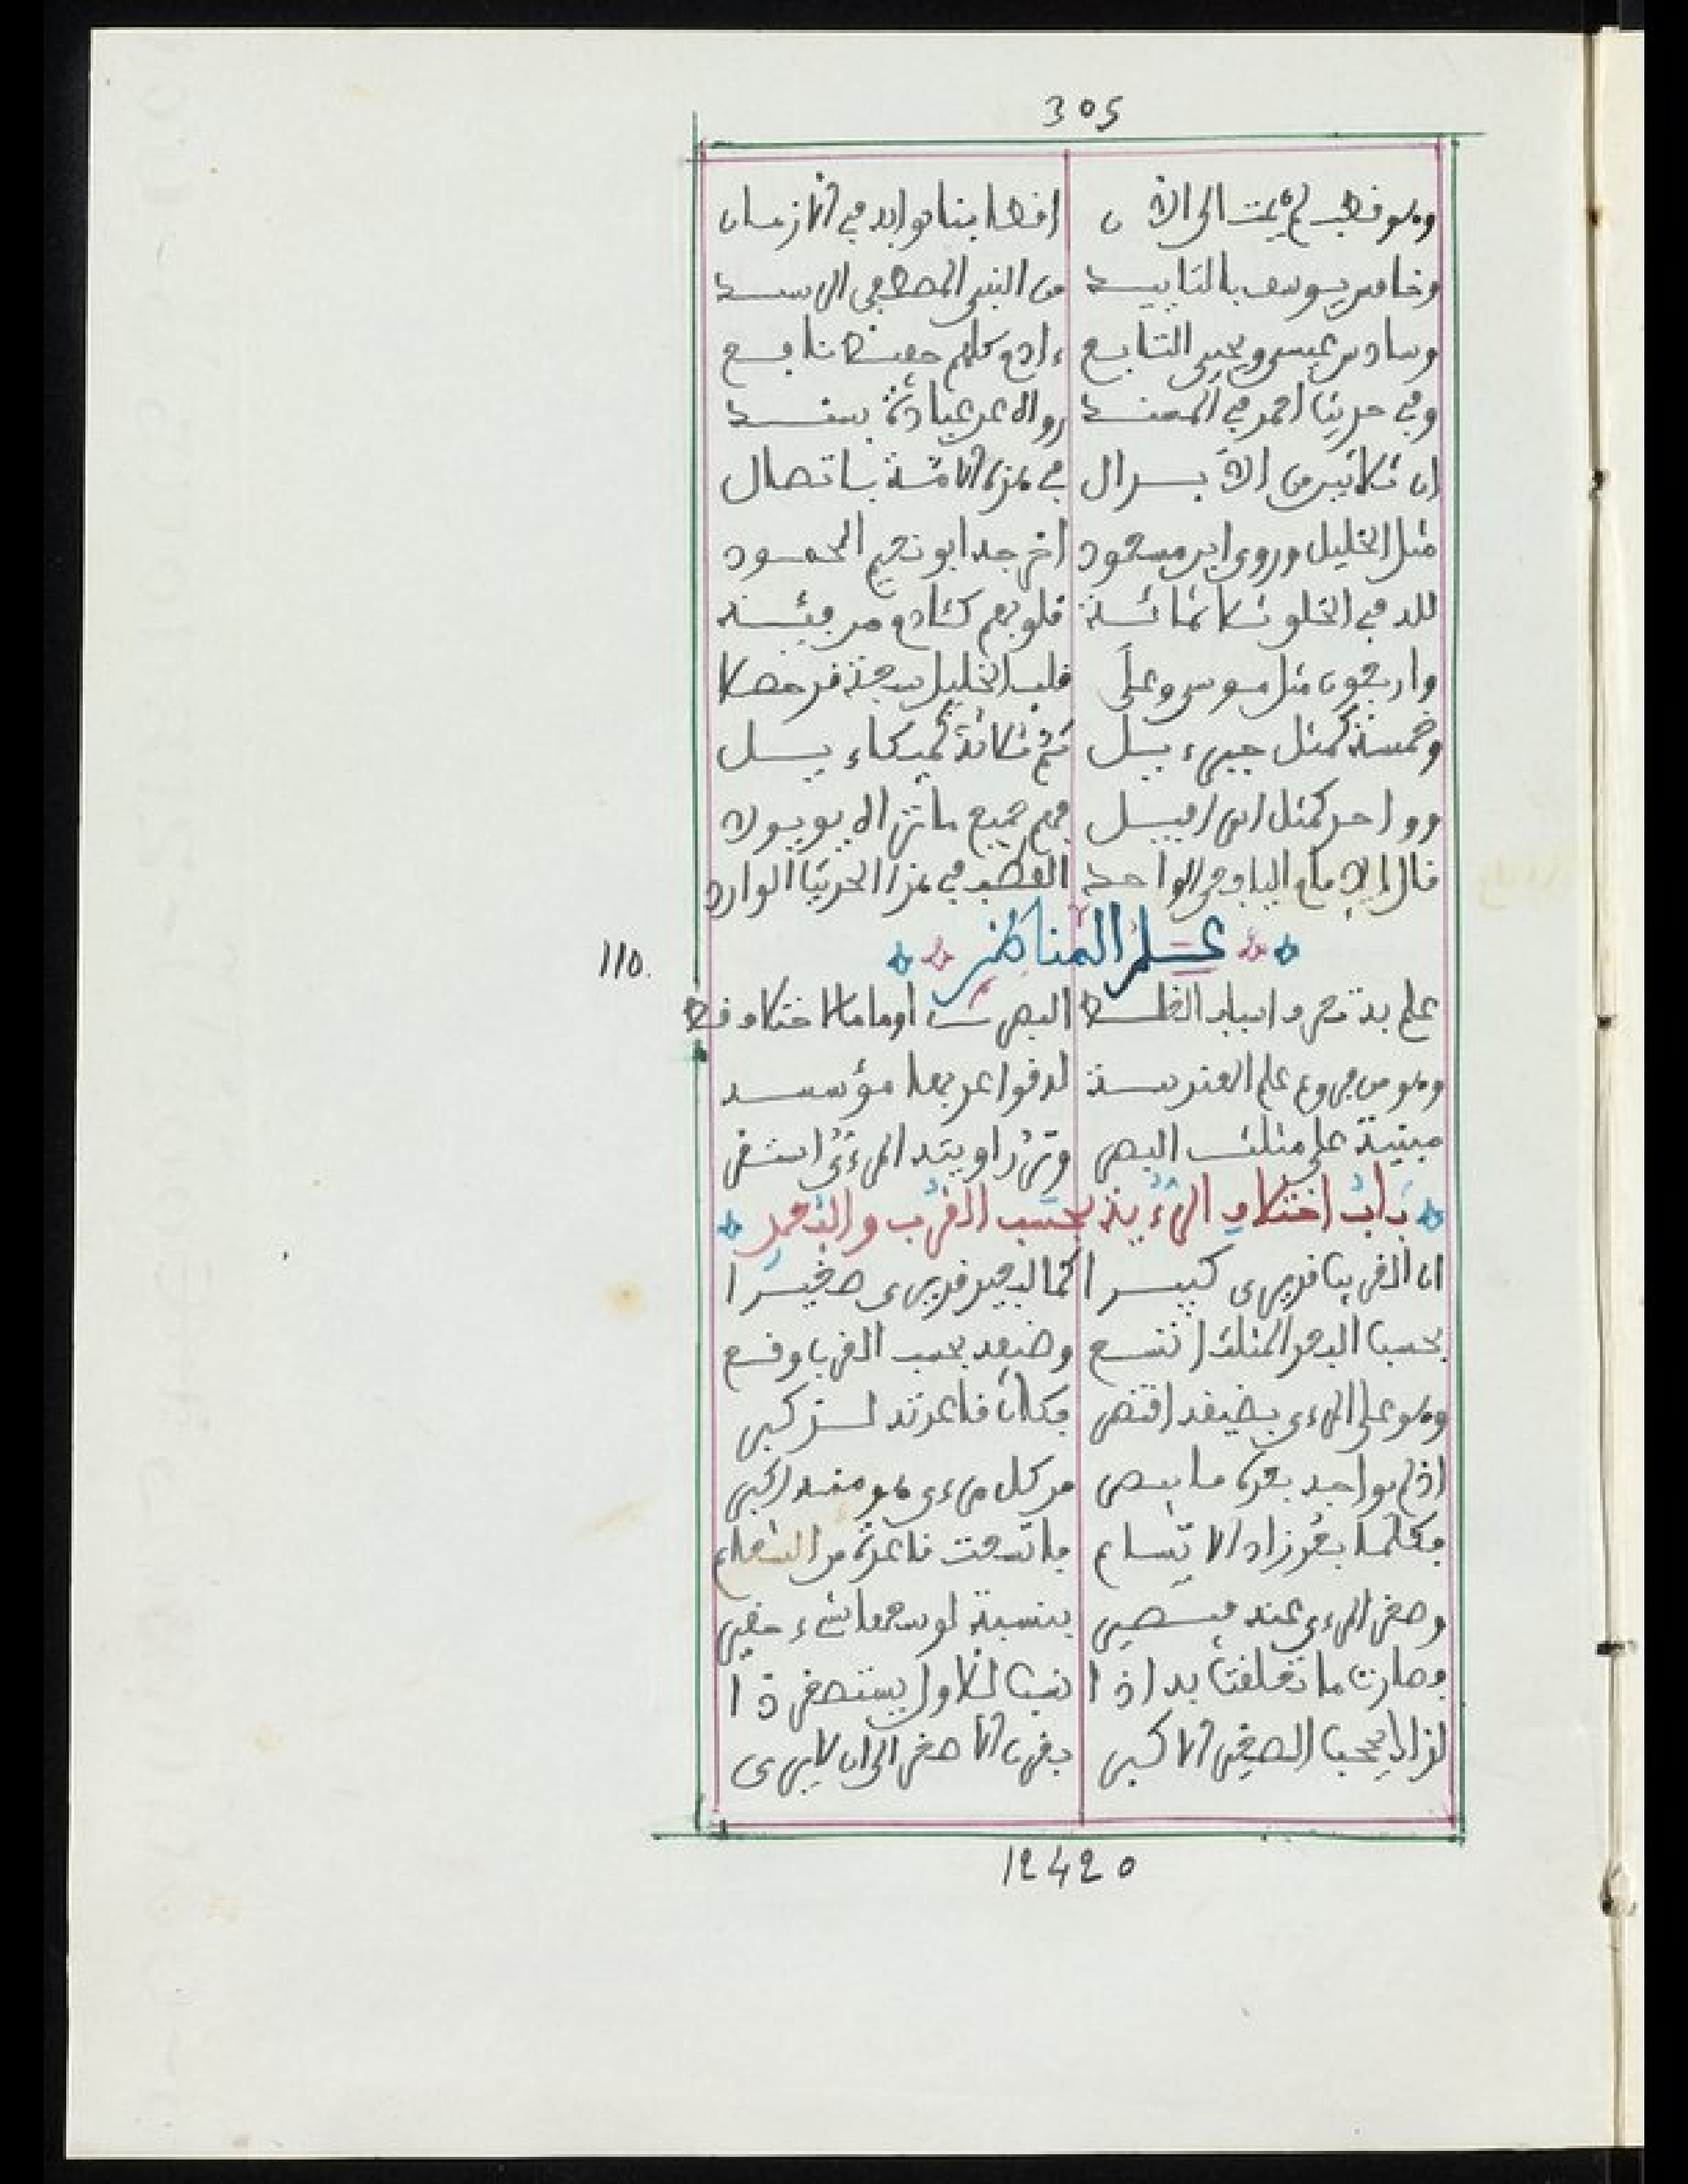 305
وهو قطب لم يمت إلى الآن افضابنا نوابه في الازمان
وخامس يوسف بالتاييد من النبي المصطفى السيد
وسادس عيسى ويحيى التابع ءادم كلهم حفيظ نافع
وفي حديث احمد في المسند رواه عن عبادة بسند
ان ثلاثين من الابدال في هذه الامة باتصال
مثل الخليل وروى ابن مسعود اخرجه ابو نعيم المحمود
لله في الخلق ثلاثمائة قلوبهم كئادم مرضية
واربعون مثل موسى وعلى قلب الخليل سبعة قد حصلا
وخمسة كمثل جبرءيل ثم ثلاثة لميكاءيل
وواحد كمثل اسرافيل فهم جميع
قال الامام اليافعي الواحد القطب في هذا الحديث الوارد
علم المناظر
110.
علم به تعرف اسباب الغلط البصرت اوما ما اختلاف قط
وهو من فروع علم الهندسة له قواعد بها مؤسسه
مبنية على مثلث البصر وتر زاويته المرءي اشتهر
باب اختلاف الرءية بحسب القرب والبعد
ان القريب قد يرى كبيرا كما البعيد قد يرى صغيرا
بحسب البعد المثلث اتسع وضيقه بحسب القرب وقع
وهو على المرءي بضيقه اقتصر فكان قاعدته لذ كبر
اذ لم يواجه بعده ما يبصر من كل مرءي هو منه اكبر
فكلما بعد زاد الاتساع ما تسعت قاعدة من الشعاع
وصغر المرءي عنه فيصير بنسبة لوسعها شيء حقير
وصارت ما تعلقت به اذا نسب للاول يستصغر ذا
لذا يحجب الصغير الاكبر بقرب الاصغر الى ان لا يرى
12420